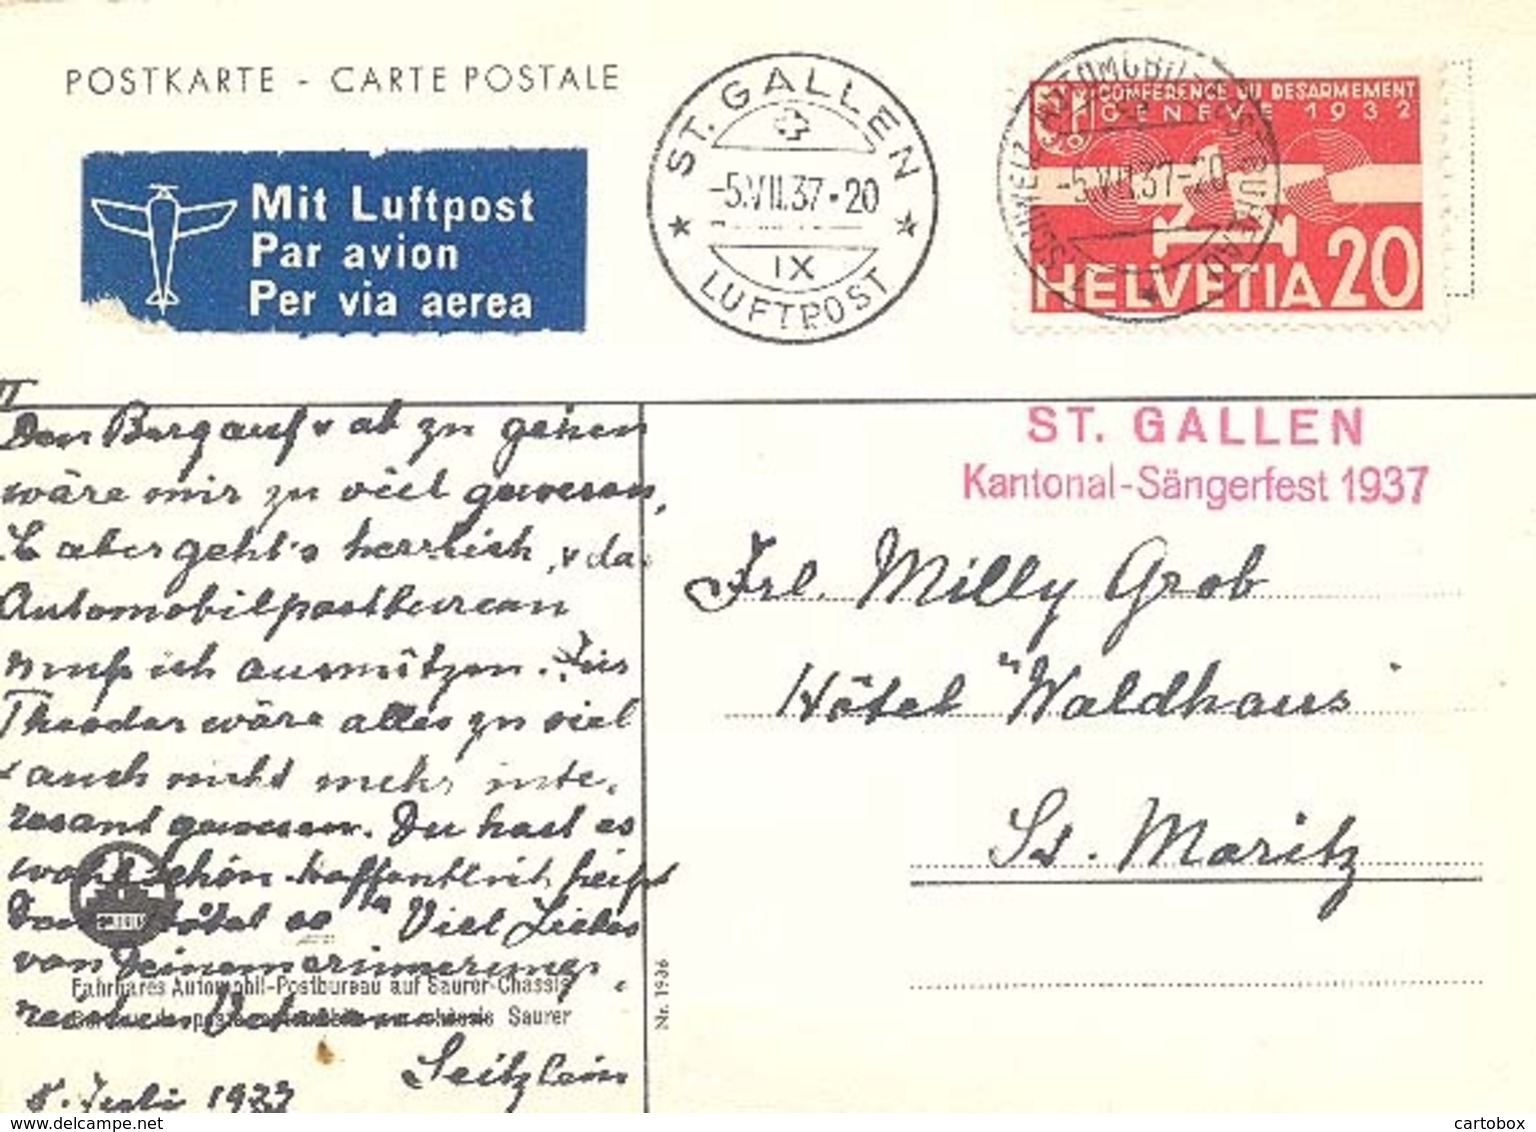 POSTKARTE - CARTE POSTALE
Mit Luftpost
Par avion
Per via aerea
ST. GALLEN
-5.VII.37•20
IX
LUFTPOST
SCHWEIZ. AUTOMOBIL-POSTBUREAU
-5.VII.37-20
CONFERENCE DU DESARMEMENT
GENEVE 1932
HELVETIA 20
II
Den Berg auf u ab zu gehen
wäre mir zu viel gewesen,
aber geht's herrlich, u da
Automobilpostbureau
muß ich ausnützen. Für
Theodor wäre alles zu viel
u auch nicht mehr inte-
resant gewesen. Du hast es
wohl schön hoffentlich, heißt
Hôtel so Viel Liebes
von Deinem erinnerungs-
reichen
5. Juli 1937
Fahrbares Automobil-Postbureau auf Saurer-Chassis
châssis Saurer
Nr. 1936
ST. GALLEN
Kantonal-Sängerfest 1937
Frl. Milly Grob
Hôtel "Waldhaus"
St. Moritz
cartobox